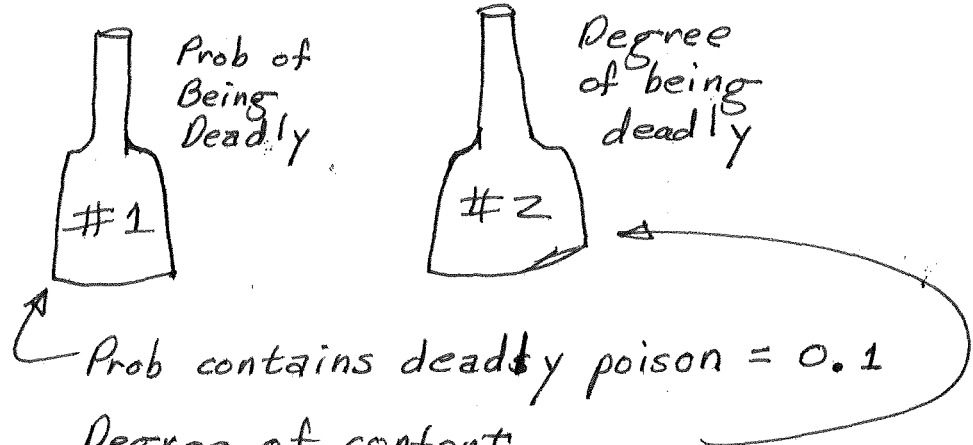 Prob of
Being
Deadly
Degree
of being
deadly
#1
#2
Prob contains deadly poison = 0.1
Degree of content